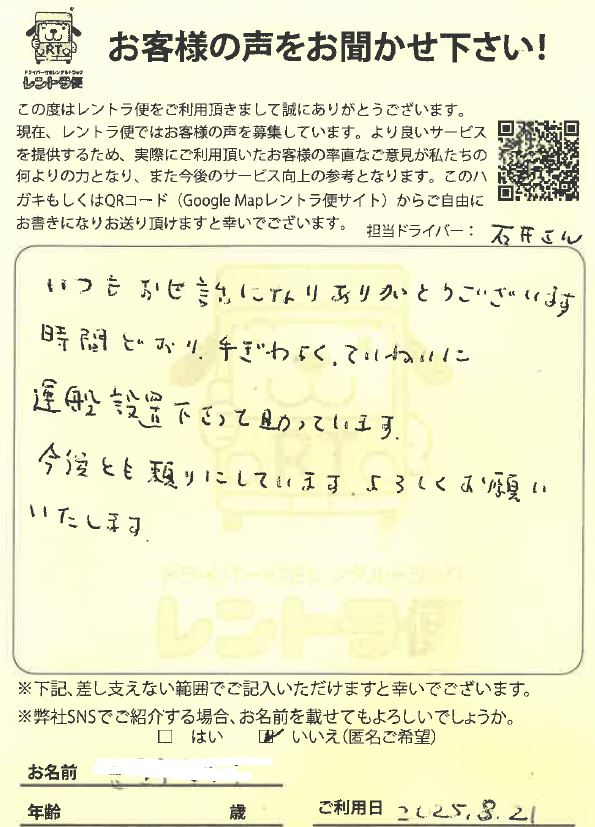 RT
ドライバー付きレンタルトラック
レントラ便
お客様の声をお聞かせ下さい!
この度はレントラ便をご利用頂きまして誠にありがとうございます。
現在、レントラ便ではお客様の声を募集しています。より良いサービス
を提供するため、実際にご利用頂いたお客様の率直なご意見が私たちの
何よりの力となり、また今後のサービス向上の参考となります。このハ
ガキもしくはQRコード（Google Mapレントラ便サイト）からご自由に
お書きになりお送り頂けますと幸いでございます。
担当ドライバー： 石井さん
いつもお世話になりありがとうございます
時間どおり、手ぎわよく、ていねいに
運搬設置下さって助っています。
今後とも頼りにしています。よろしくお願い
いたします。
RT
レントラ便
※下記、差し支えない範囲でご記入いただけますと幸いでございます。
※弊社SNSでご紹介する場合、お名前を載せてもよろしいでしょうか。
□ はい ☑ いいえ（匿名ご希望）
お名前
年齢 歳 ご利用日 2025.8.21